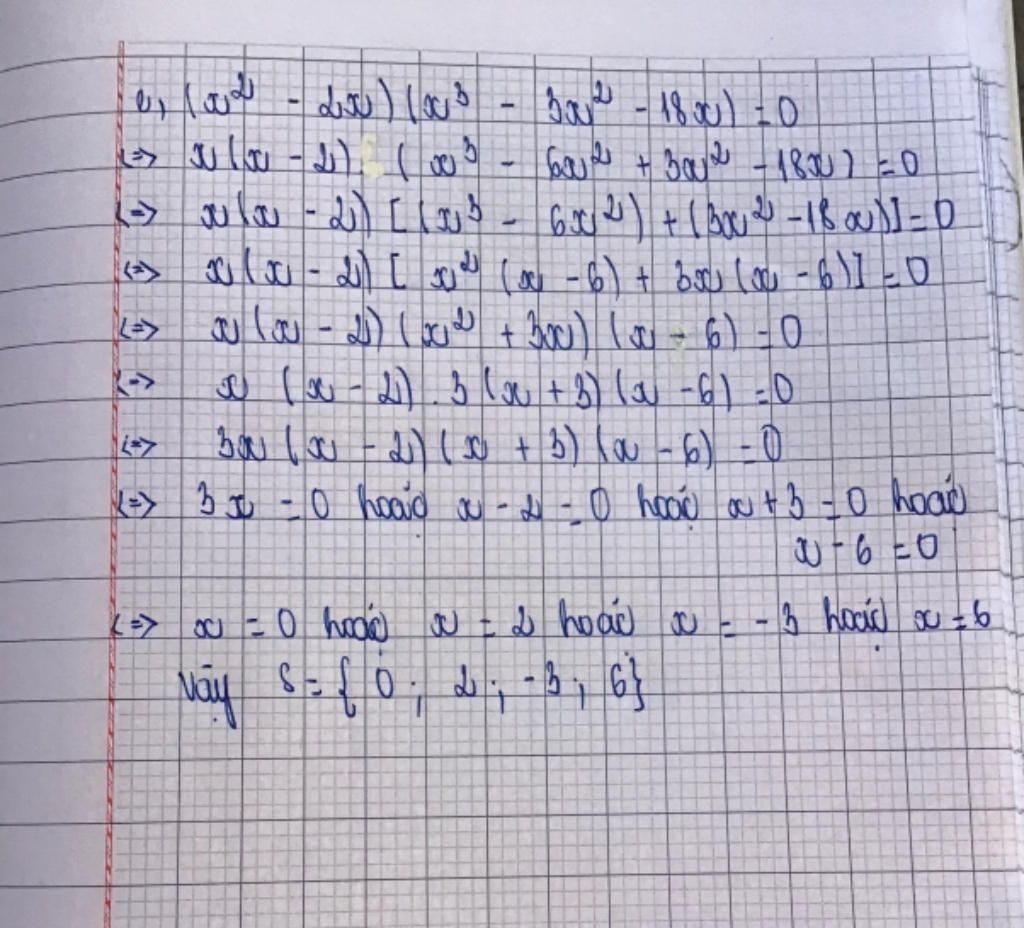 e, (x² - 2x)(x³ - 3x² - 18x) = 0
<=> x(x - 2) (x³ - 6x² + 3x² - 18x) = 0
<=> x(x - 2) [(x³ - 6x²) + (3x² - 18x)] = 0
<=> x(x - 2) [x² (x - 6) + 3x (x - 6)] = 0
<=> x(x - 2) (x² + 3x) (x - 6) = 0
<=> x (x - 2) . 3 (x + 3) (x - 6) = 0
<=> 3x (x - 2) (x + 3) (x - 6) = 0
<=> 3x = 0 hoặc x - 2 = 0 hoặc x + 3 = 0 hoặc
x - 6 = 0
<=> x = 0 hoặc x = 2 hoặc x = -3 hoặc x = 6
Vậy S = { 0 ; 2 ; -3 ; 6}